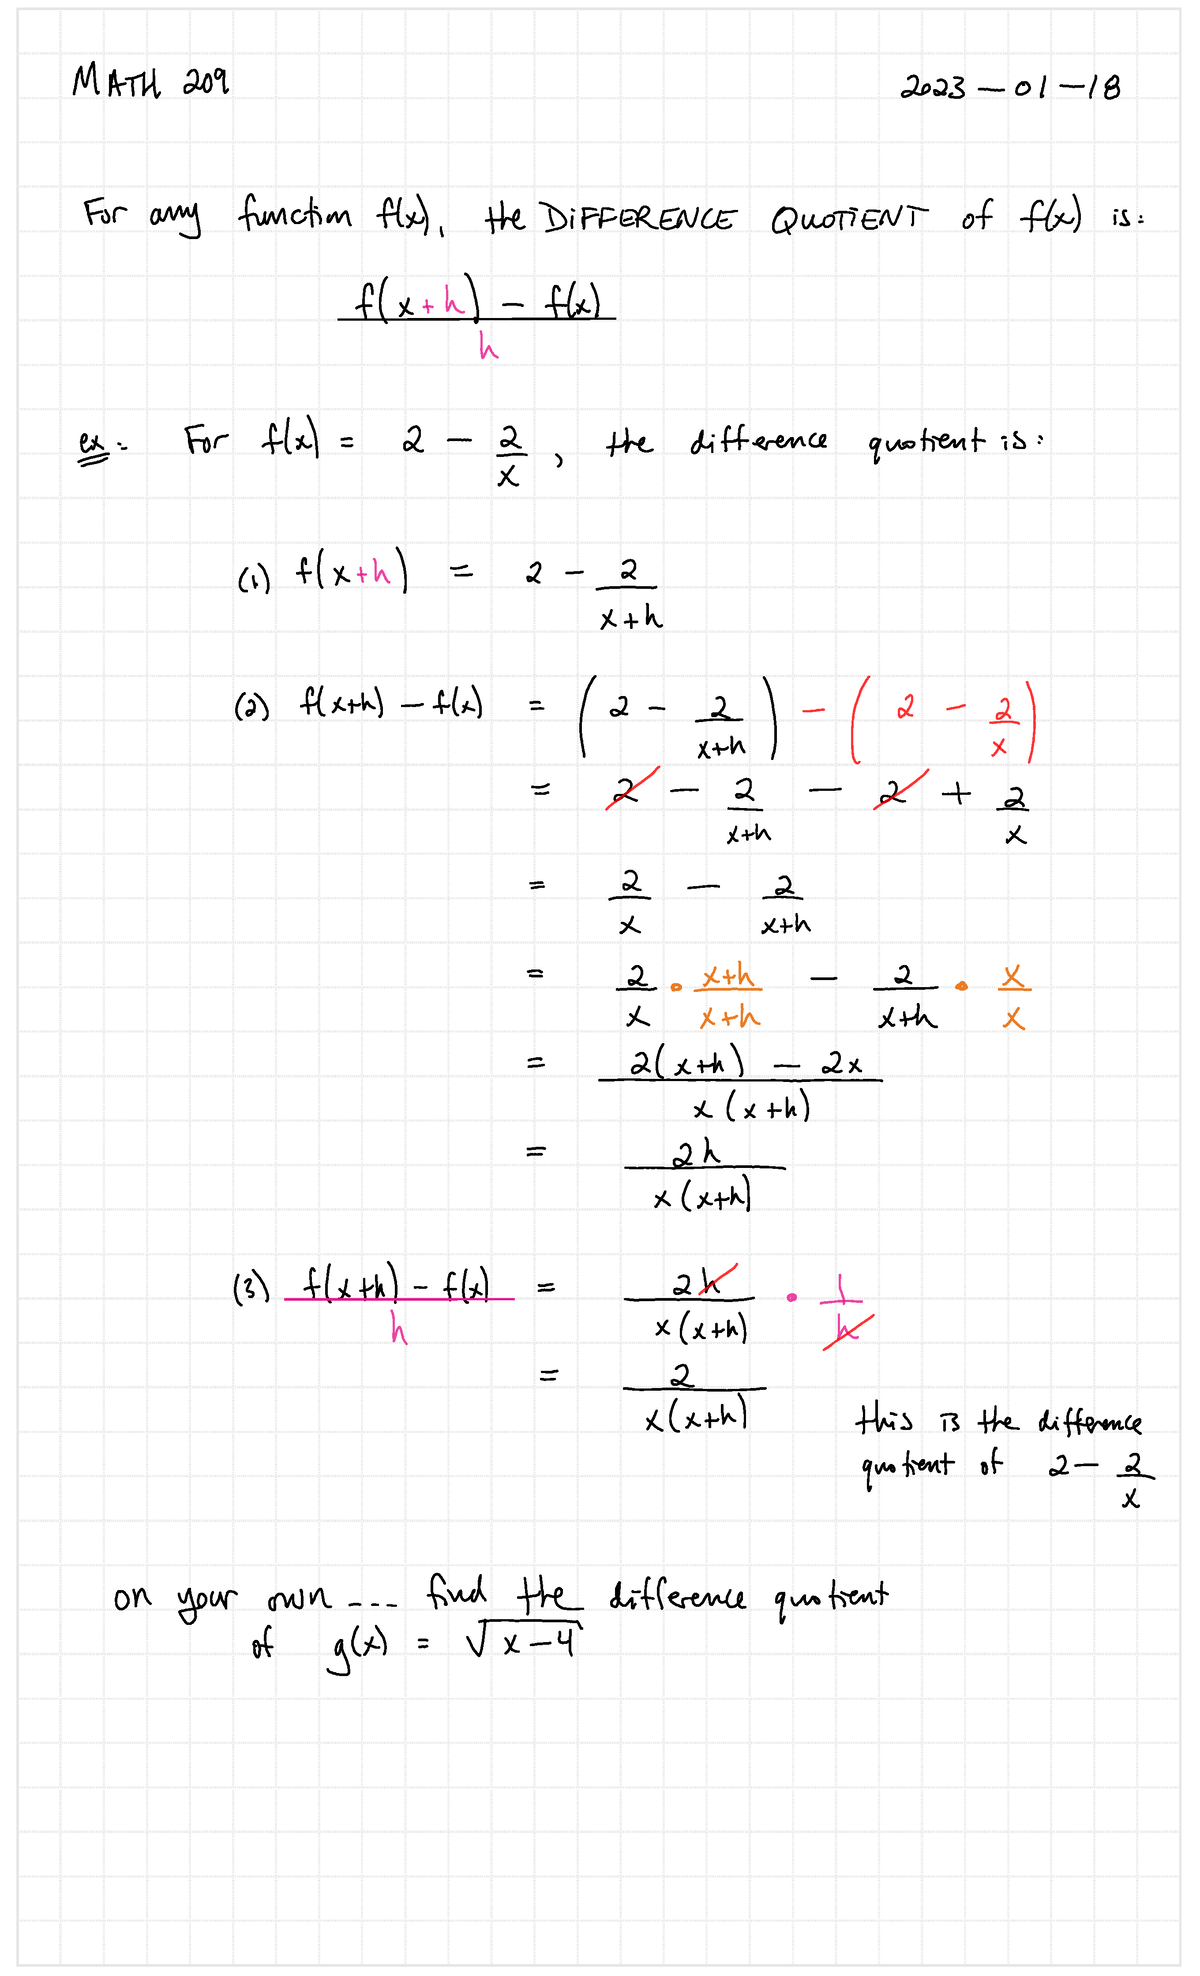 MATH 209 2023-01-18
For any function f(x), the DIFFERENCE QUOTIENT of f(x) is:
f(x+h) - f(x)
h
ex: For f(x) = 2 - 2/x, the difference quotient is:
(1) f(x+h) = 2 - 2/(x+h)
(2) f(x+h) - f(x) = (2 - 2/(x+h)) - (2 - 2/x)
= 2 - 2/(x+h) - 2 + 2/x
= 2/x - 2/(x+h)
= 2/x • (x+h)/(x+h) - 2/(x+h) • x/x
= (2(x+h) - 2x)/(x(x+h))
= 2h/(x(x+h))
(3) (f(x+h) - f(x))/h = 2h/(x(x+h)) • 1/h
= 2/(x(x+h))
this is the difference
quotient of 2 - 2/x
on your own --- find the difference quotient
of g(x) = √(x-4)